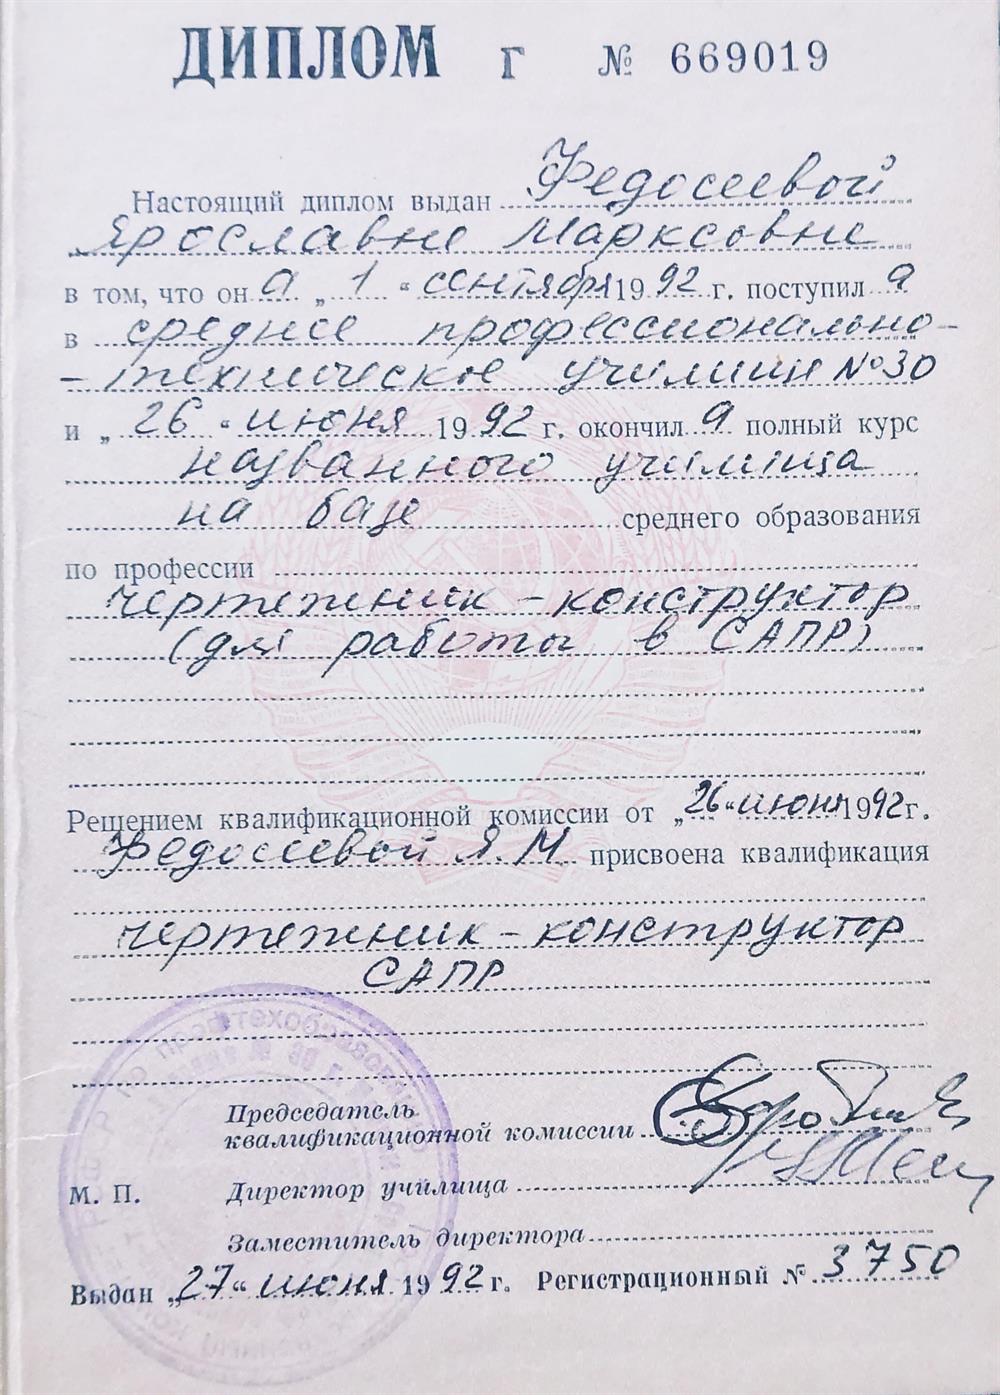 ДИПЛОМ Г № 669019
Настоящий диплом выдан Федосеевой
Ярославне Марксовне
в том, что он а „ 1 “ сентября 1992 г. поступил а
в среднее профессионально-
- техническое училищн №30
и „ 26 “ июня 1992 г. окончил а полный курс
названного училища
на базе среднего образования
по профессии
чертежник - конструктор
(для работы в САПР)
Решением квалификационной комиссии от „26“ июня 1992г.
Федосеевой Я.М. присвоена квалификация
чертежник - конструктор
САПР
Председатель
квалификационной комиссии
М. П. Директор училища
Заместитель директора
Выдан „27“ июня 1992 г. Регистрационный № 3750
по профтехобразованию